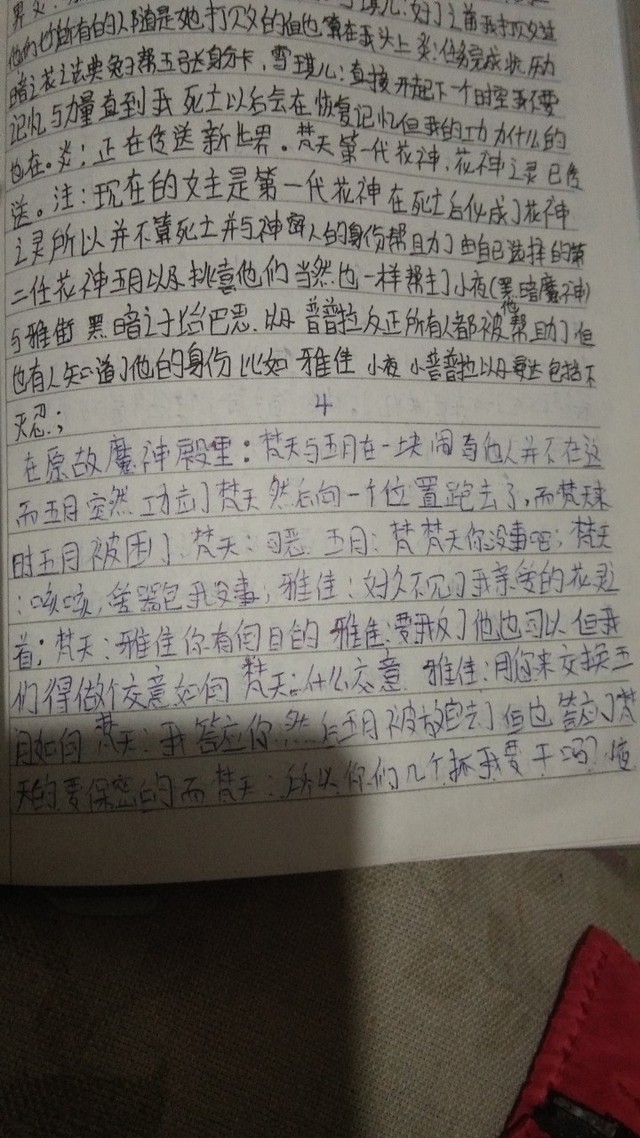 他们也所有的人随是她打欠的但也算在我头上炎:任务完成状
暗之花之法典兔子帮五弓长身分卡,雪琪儿:直接开起下一个时空我不要
记忆与力量直到我死亡以后会在恢复记忆但我的功力什么的
也在。炎:正在传送新世界。梵天第一代花神,花神之灵已传
送。注:现在的女主是第一代花神在死亡后化成了花神
之灵所以并不算死亡并与神密人的身份帮助了由自己选择的第
二任花神五月以及 他们当然也一样帮主了小夜(黑暗魔神)
与雅 黑暗之子 巴思 普普拉反正所有人都被他帮助了但
也有人知道了他的身份比如雅佳 小夜 小普普拉以及 包括不
灭忍;
4
在原故魔神殿里:梵天与五月在一块闹 他人并不在这
而五月突然 了梵天然后向一个位置跑去了,而梵天来
时五月被困了 梵天:可恶 五月:梵梵天你没事吧;梵天
:咳咳, 我没事,雅佳:好久不见了我亲爱的花灵
首;梵天:雅佳你有何目的 雅佳:要我放了他也可以但我
们得做个交意如何 梵天:什么交意 雅佳:用你来交换五
月如何 梵天:我答应你 然后五月被放跑去了但也答应了梵
天的要保密的而梵天:所以你们几个抓我要干吗?夜